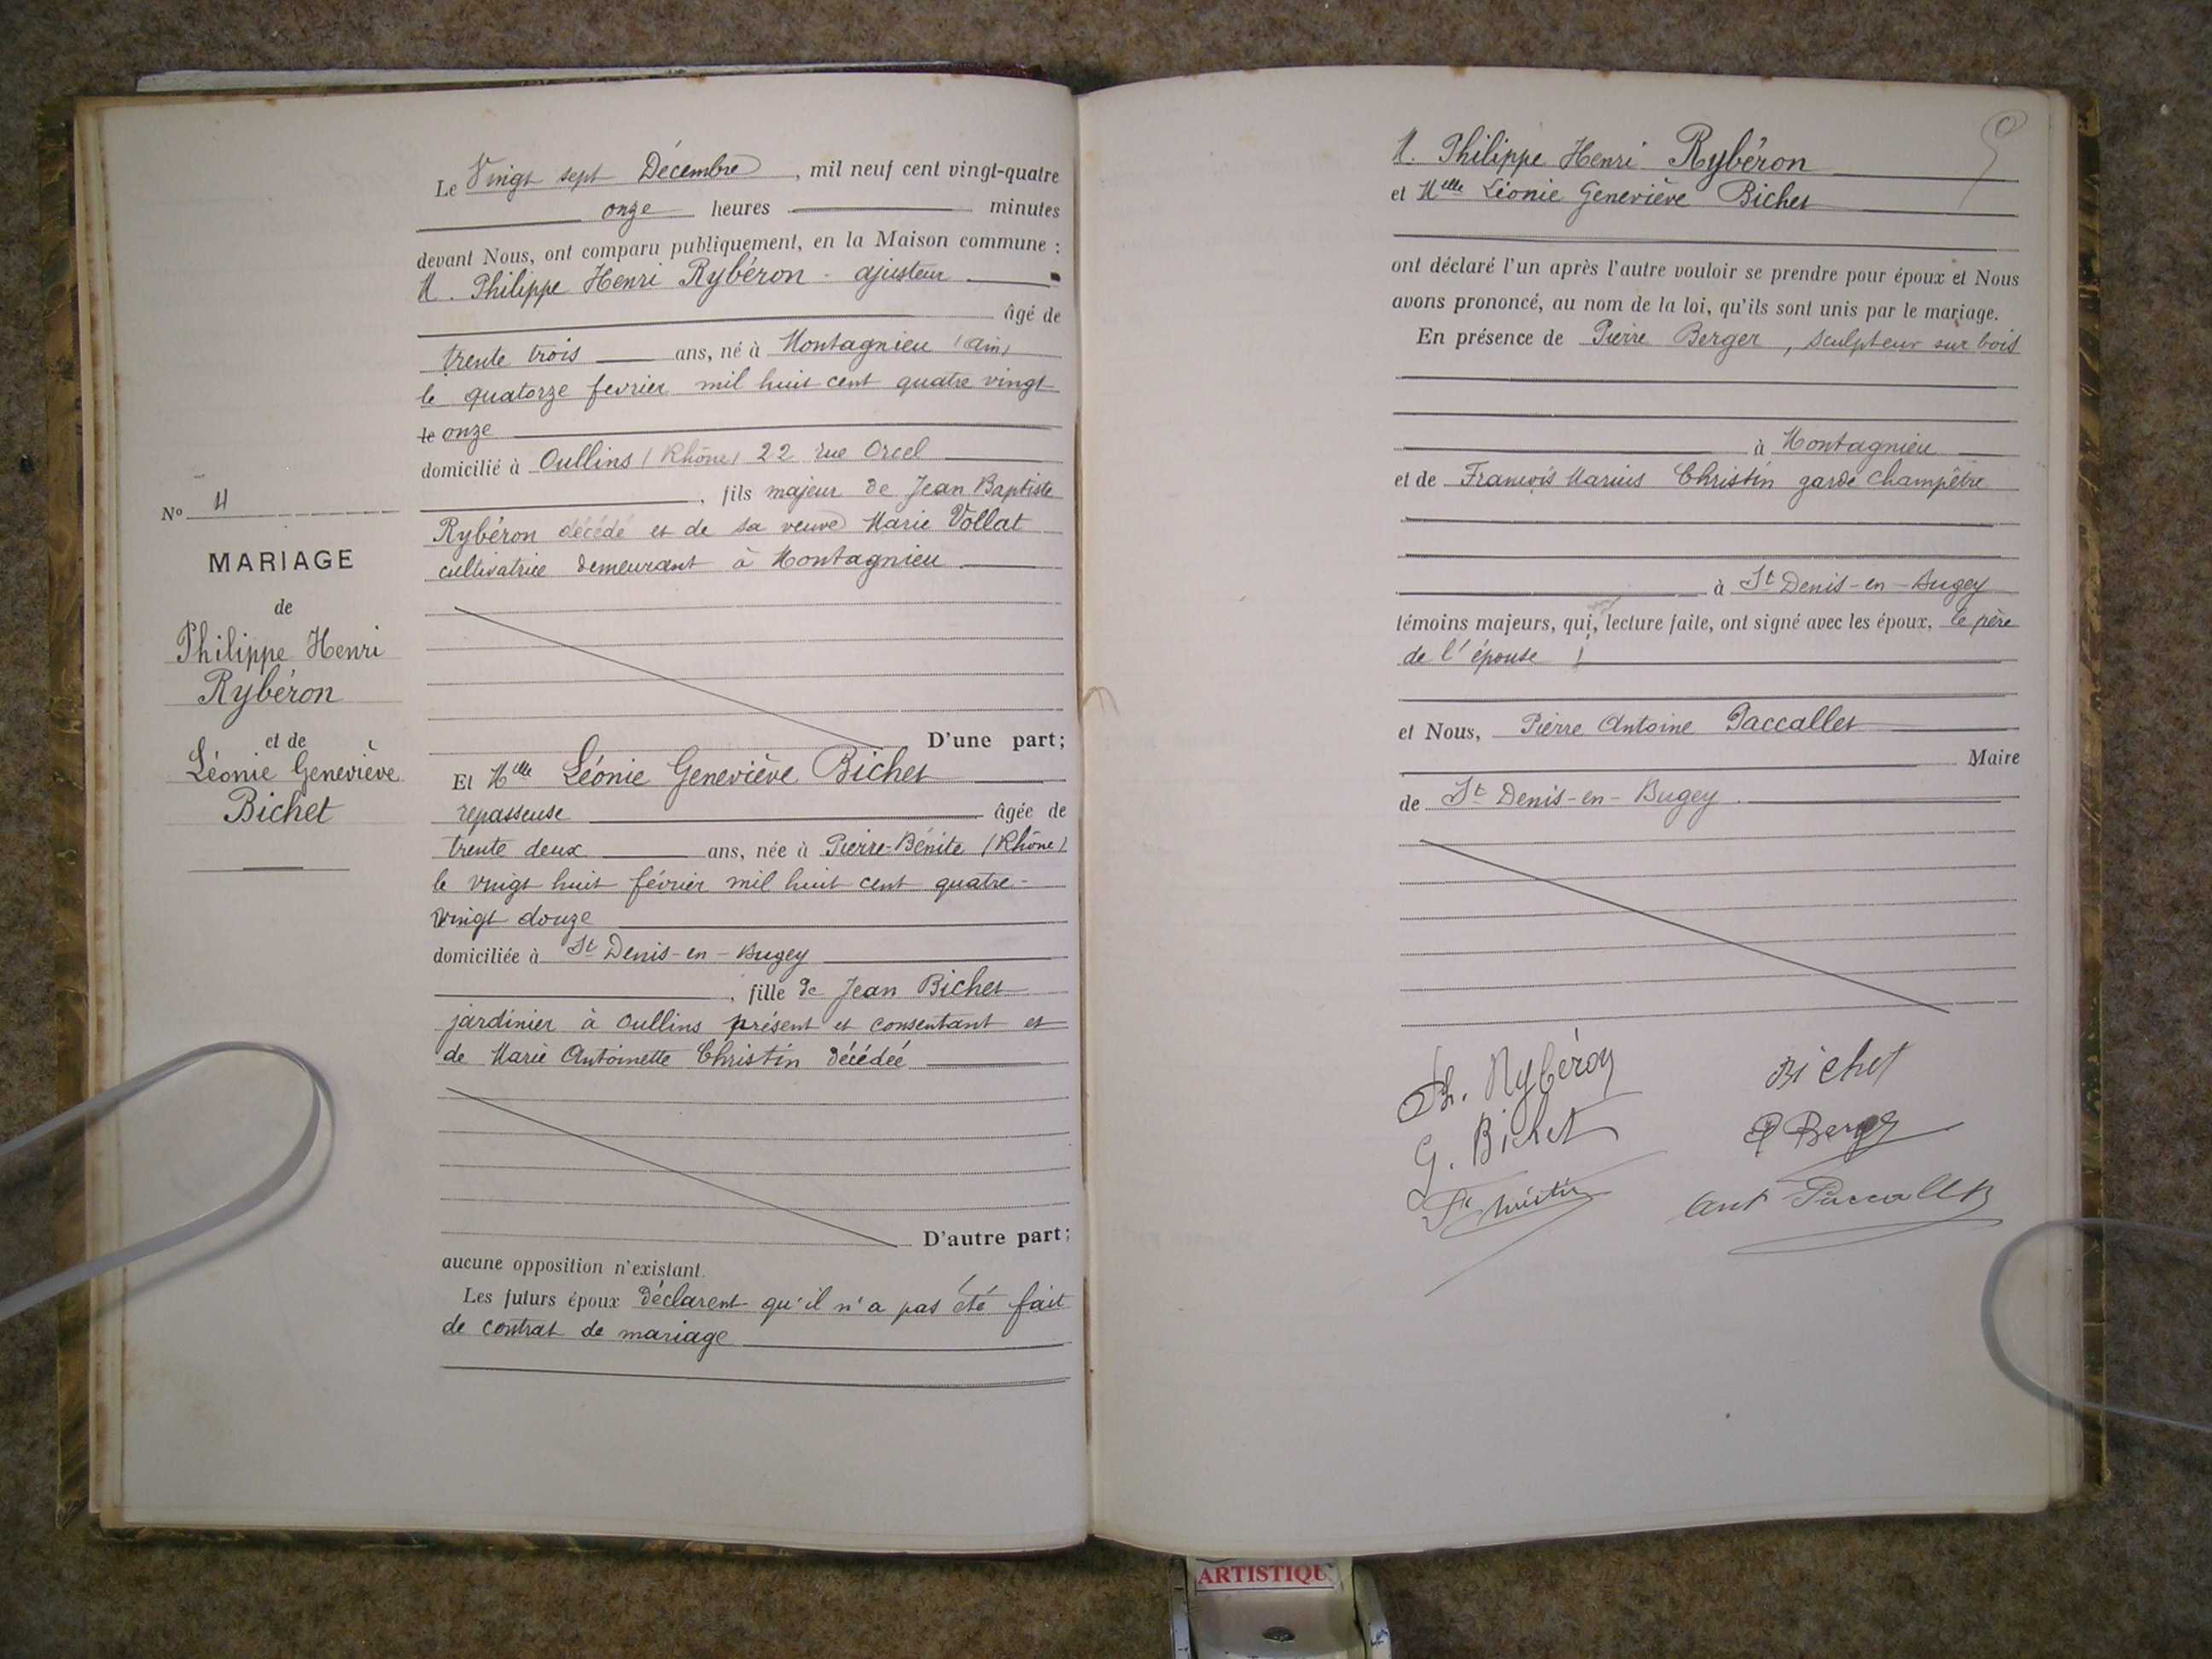 Nº 4
MARIAGE
de
Philippe Henri
Rybéron
et de
Léonie Geneviève
Bichet
Le Vingt sept Décembre, mil neuf cent vingt-quatre
onze heures minutes
devant Nous, ont comparu publiquement, en la Maison commune :
M. Philippe Henri Rybéron - ajusteur
âgé de
trente trois ans, né à Montagnieu (Ain)
le quatorze fevrier mil huit cent quatre vingt
le onze
domicilié à Oullins (Rhône) 22 rue Orcel
, fils majeur de Jean Baptiste
Rybéron décédé et de sa veuve Marie Vollat
cultivatrice demeurant à Montagnieu
D'une part;
Et Melle Léonie Geneviève Bichet
repasseuse âgée de
trente deux ans, née à Pierre-Bénite (Rhône)
le vingt huit février mil huit cent quatre-
vingt douze
domiciliée à St Denis-en-Bugey
, fille de Jean Bichet
jardinier à Oullins présent et consentant et
de Marie Antoinette Christin décédée
D'autre part;
aucune opposition n'existant.
Les futurs époux déclarent qu'il n'a pas été fait
de contrat de mariage
M. Philippe Henri Rybéron
et Melle Léonie Geneviève Bichet
ont déclaré l'un après l'autre vouloir se prendre pour époux et Nous
avons prononcé, au nom de la loi, qu'ils sont unis par le mariage.
En présence de Pierre Berger, sculpteur sur bois
à Montagnieu
et de François Marius Christin garde champêtre
à St Denis-en-Bugey
témoins majeurs, qui, lecture faite, ont signé avec les époux, le père
de l'épouse
et Nous, Pierre Antoine Paccallet
Maire
de St Denis-en-Bugey.
Ph. Rybéron
Bichet
G. Bichet
P Berger
Christin
Ant Paccallet
ARTISTIQU